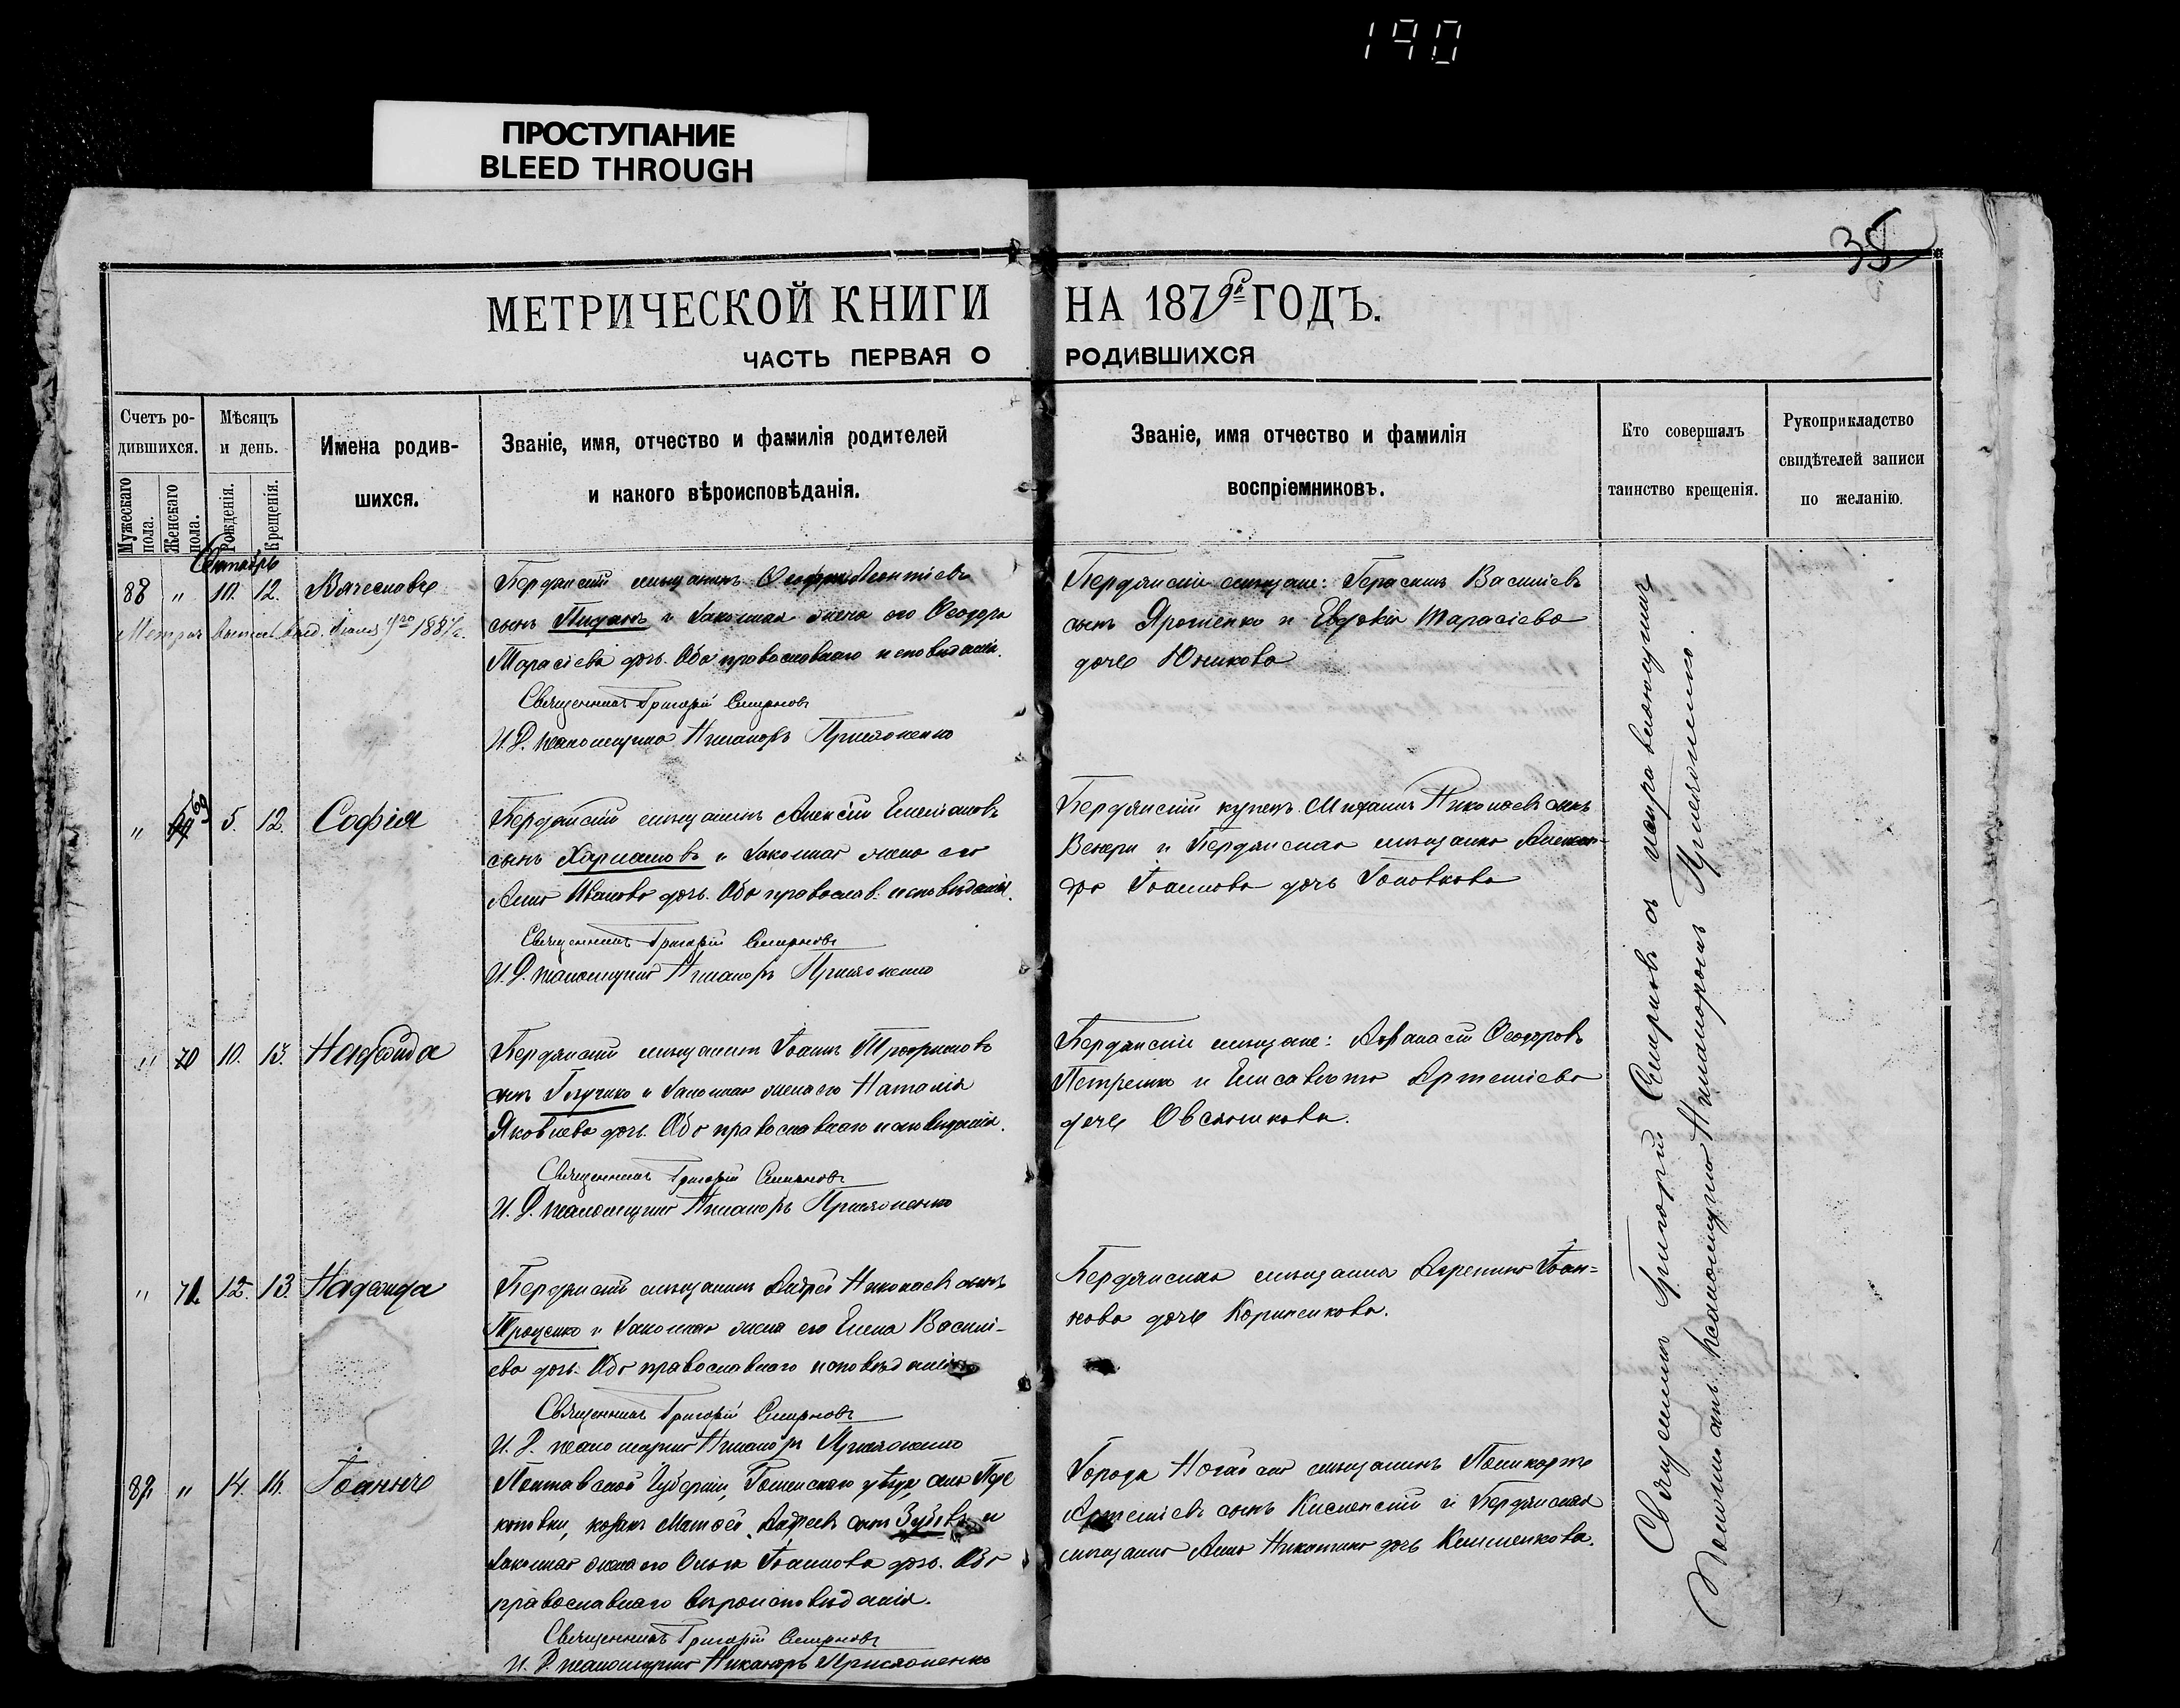 190
ПРОСТУПАНИЕ
BLEED THROUGH
МЕТРИЧЕСКОЙ КНИГИ НА 1879й ГОДЪ.
ЧАСТЬ ПЕРВАЯ О РОДИВШИХСЯ
Счетъ ро-
дившихся.
Мужескаго пола.
Женскаго пола.
Мѣсяцъ
и день.
Рожденія.
Крещенія.
Имена родив-
шихся.
Званіе, имя, отчество и фамилія родителей
и какого вѣроисповѣданія.
Званіе, имя отчество и фамилія
воспріемниковъ.
Кто совершалъ
таинство крещенія.
Рукоприкладство
свидѣтелей записи
по желанію.
Октябрь
88 " 10. 12. Вячеславъ
Бердянскій мѣщанинъ Леонтіевъ
сынъ и законная жена его Ѳеодора
Тарасіева дочь. Оба православнаго исповѣданія.
Священникъ Григорій Смирновъ
И. Д. псаломщика Никаноръ Прислоненко
Бердянскіе мѣщане: Герасимъ Василіевъ
сынъ Ярошенко и Евдокія Тарасіева
дочь Юникова
" 69 5. 12. Софія
Бердянскій мѣщанинъ Алексій Емеліановъ
сынъ Харламовъ и законная жена его
Анна Иванова дочь. Оба православ. исповѣданія.
Священникъ Григорій Смирновъ
И. Д. псаломщика Никаноръ Прислоненко
Бердянскій купецъ Михаилъ Николаевъ сынъ
Венери и Бердянская мѣщанка Алексан-
дра Іоаннова дочь Головкова
" 70 10. 13. Надежда
Бердянскій мѣщанинъ Іоаннъ Трофимовъ
сынъ и законная жена его Наталія
Яковлева дочь. Оба православнаго исповѣданія.
Священникъ Григорій Смирновъ
И. Д. псаломщика Никаноръ Прислоненко
Бердянскіе мѣщане: Аѳанасій Ѳеодоровъ
Петренко и Елисавета Артеміева
дочь Овсянникова.
" 71. 12. 13. Надежда
Бердянскій мѣщанинъ Андрей Николаевъ сынъ
Троценко и законная жена его Елена Василі-
ева дочь. Оба православнаго исповѣданія
Священникъ Григорій Смирновъ
И. Д. псаломщика Никаноръ Прислоненко
Бердянская мѣщанка Іоан-
нова дочь Корниенкова.
89 " 14. Іоаннъ
Полтавской Губерніи, уѣзда,
козакъ Матѳей Андреевъ сынъ Зубовъ и
законная жена его Ольга Іоаннова дочь. Оба
православнаго вѣроисповѣданія.
Священникъ Григорій Смирновъ
И. Д. псаломщика Никаноръ Прислоненко
Города Ногайска мѣщанинъ Поликарпъ
Артеміевъ сынъ и Бердянская
мѣщанка Анна Никитина дочь
Священникъ Григорій Смирновъ съ
псаломщика Никаноромъ Прислоненко.